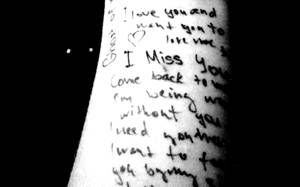 I love you and
want you to
love me
I Miss You
Come back to
I'm being
without you
I need you
I want to
you by my